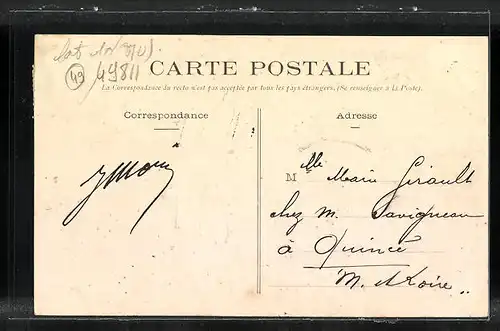 49
49811
CARTE POSTALE
La Correspondance du recto n'est pas acceptée par tous les pays étrangers. (Se renseigner à la Poste).
Correspondance
Adresse
Mlle Marie Girault
chez M. Savigneau
à Quincé
M. et Loire